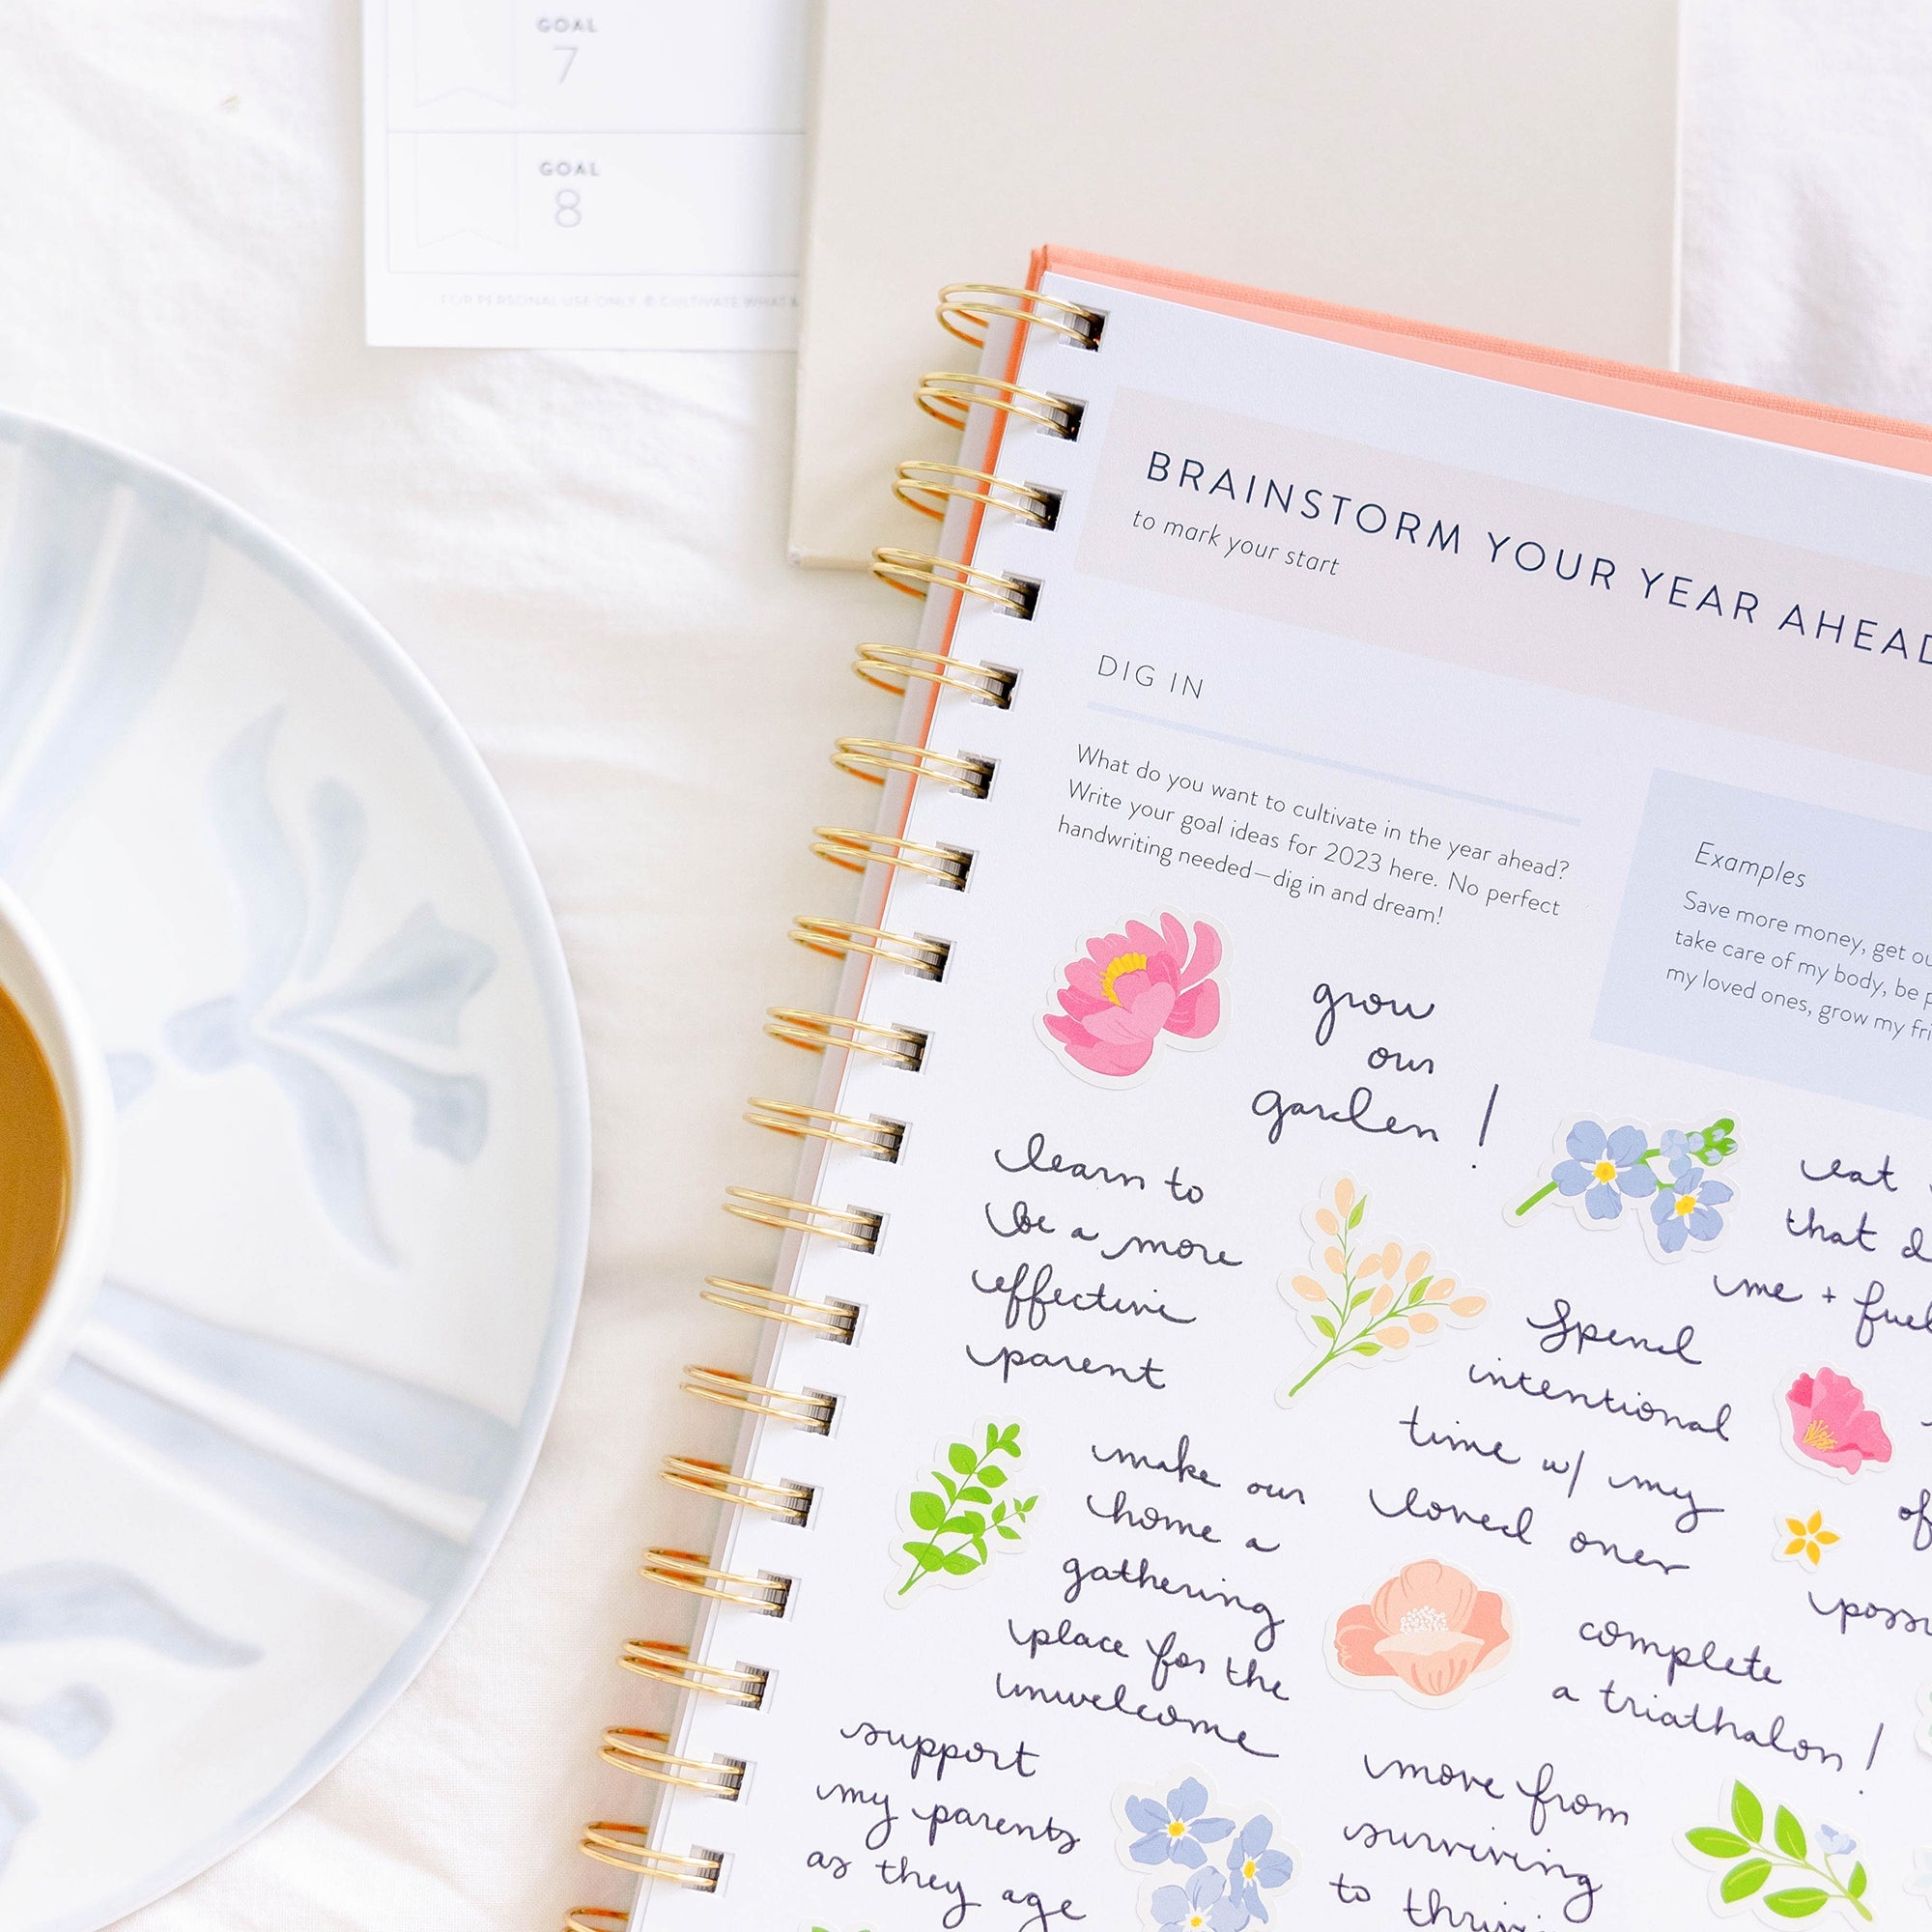 GOAL
7
GOAL
8
FOR PERSONAL USE ONLY. © CULTIVATE WHAT
BRAINSTORM YOUR YEAR AHEAD
to mark your start
DIG IN
What do you want to cultivate in the year ahead?
Write your goal ideas for 2023 here. No perfect
handwriting needed—dig in and dream!
Examples
Save more money, get
take care of my body, be
my loved ones, grow my
grow
our
garden!
learn to
be a more
effective
parent
eat
that
me + fuel
Spend
intentional
time w/ my
loved ones
make our
home a
gathering
place for the
unwelcome
of
complete
a triathalon!
support
my parents
as they age
move from
surviving
to